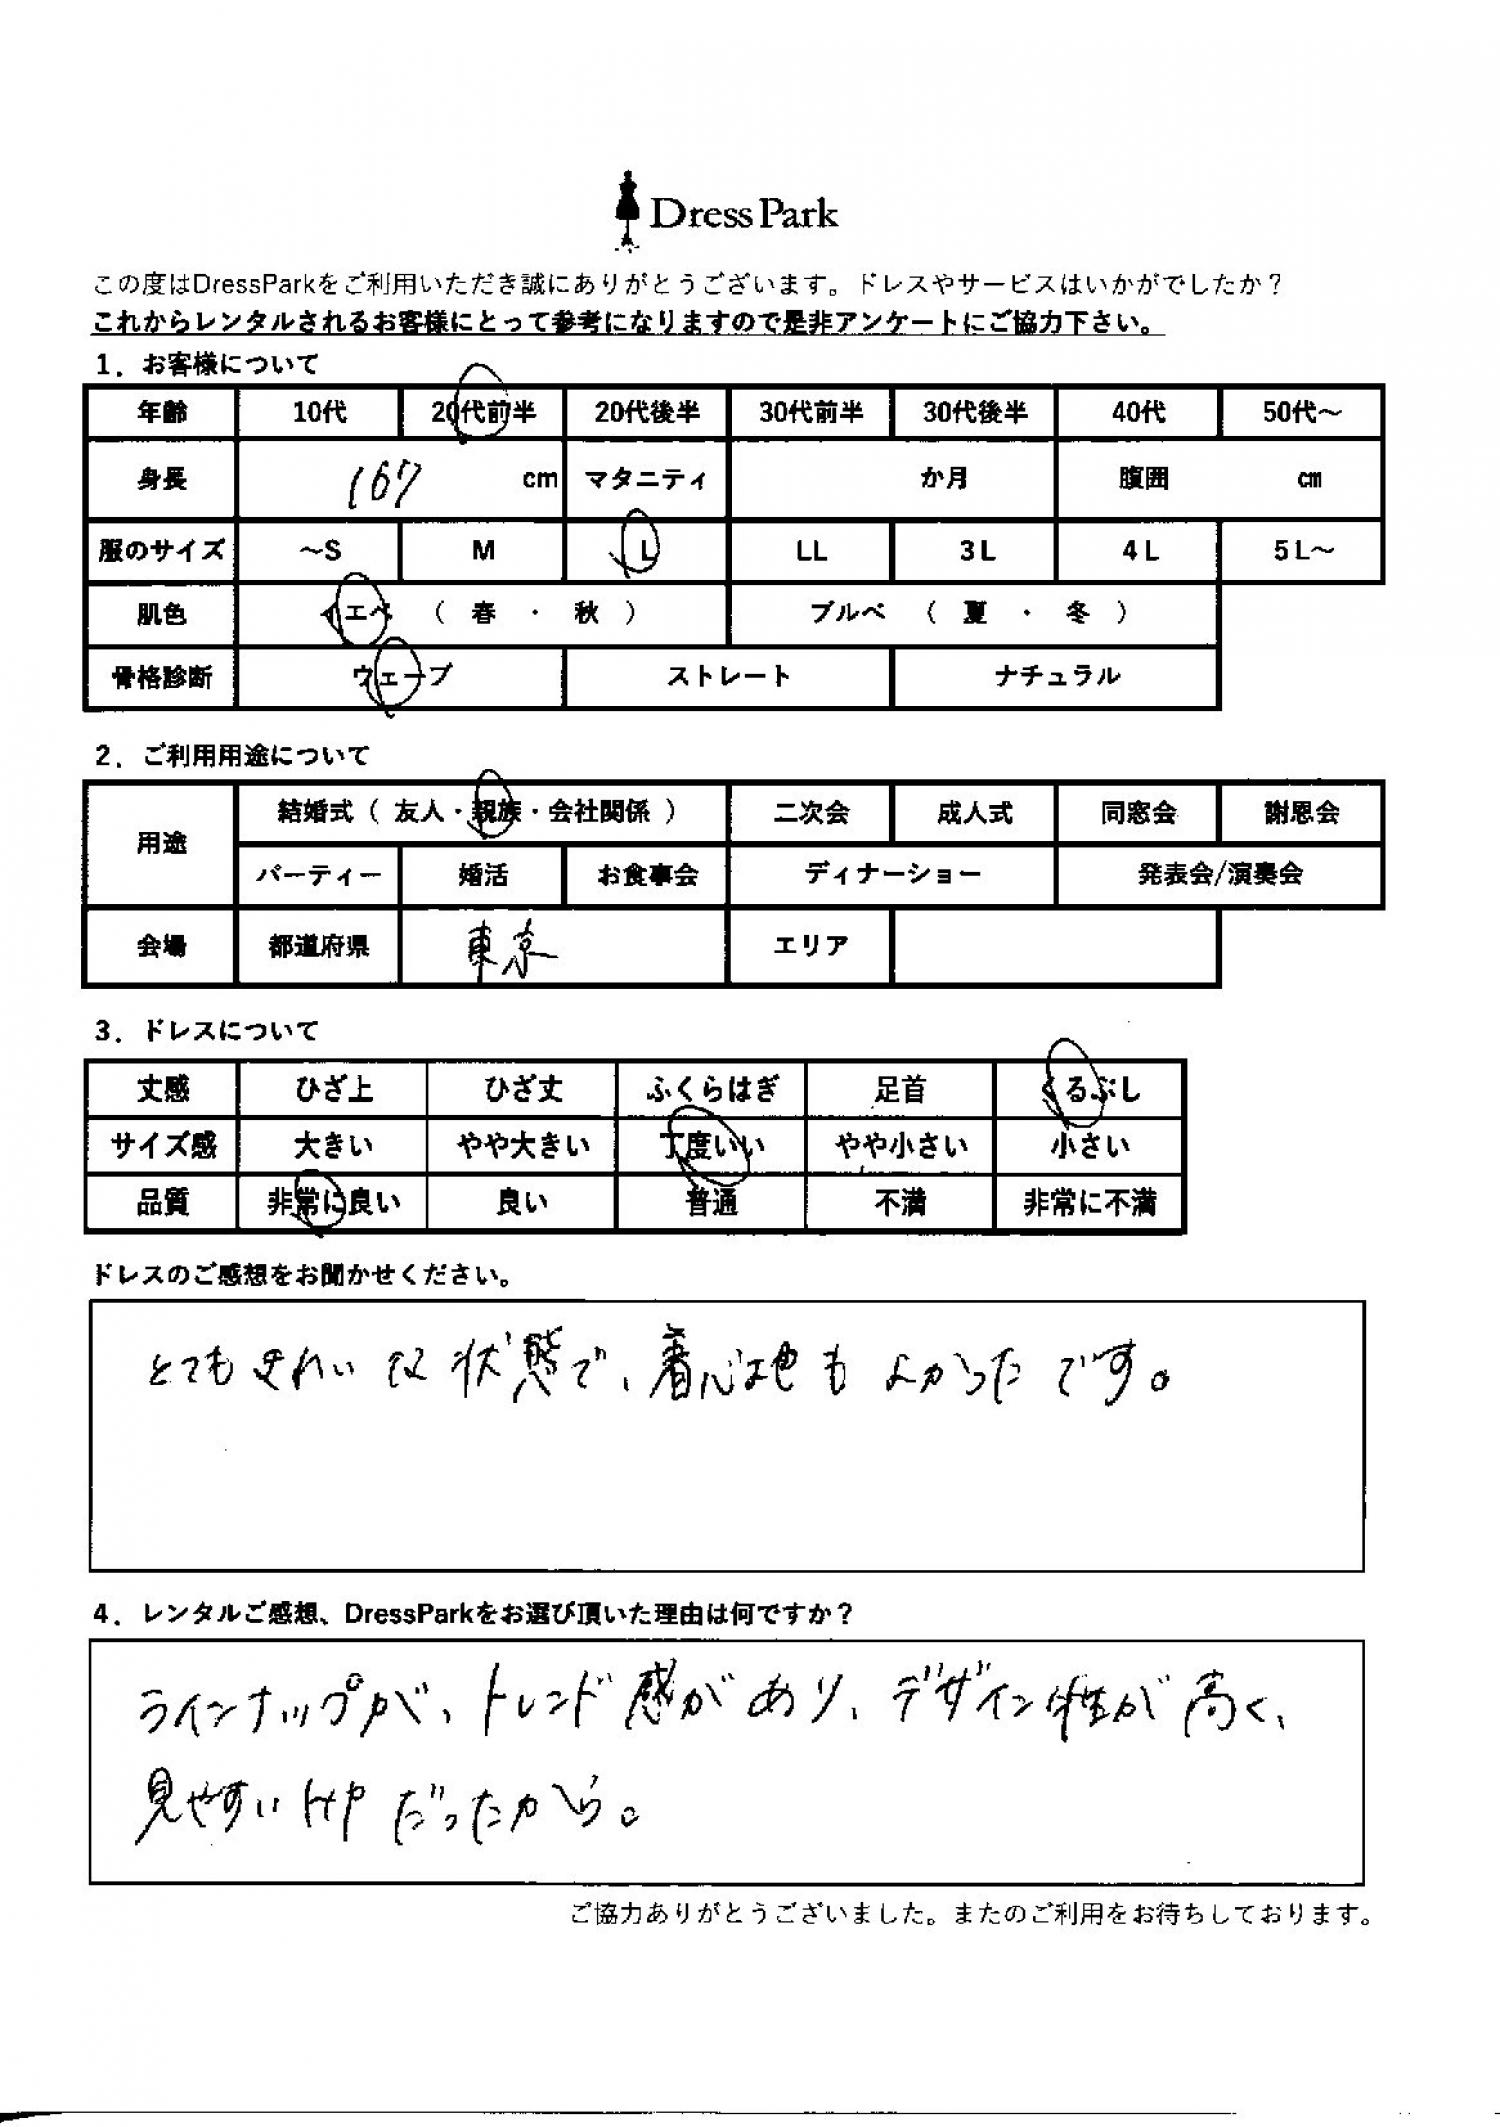 DressPark
この度はDressParkをご利用いただき誠にありがとうございます。ドレスやサービスはいかがでしたか？
これからレンタルされるお客様にとって参考になりますので是非アンケートにご協力下さい。
1．お客様について
年齢 10代 20代前半 20代後半 30代前半 30代後半 40代 50代～
身長 167 cm マタニティ か月 腹囲 ㎝
服のサイズ ～S M L LL 3L 4L 5L～
肌色 イエベ （ 春 ・ 秋 ） ブルベ （ 夏 ・ 冬 ）
骨格診断 ウェーブ ストレート ナチュラル
2．ご利用用途について
用途 結婚式（ 友人・親族・会社関係 ） 二次会 成人式 同窓会 謝恩会
パーティー 婚活 お食事会 ディナーショー 発表会/演奏会
会場 都道府県 東京 エリア
3．ドレスについて
丈感 ひざ上 ひざ丈 ふくらはぎ 足首 くるぶし
サイズ感 大きい やや大きい 丁度いい やや小さい 小さい
品質 非常に良い 良い 普通 不満 非常に不満
ドレスのご感想をお聞かせください。
とてもきれいな状態で、着心地もよかったです。
4．レンタルご感想、DressParkをお選び頂いた理由は何ですか？
ラインナップが、トレンド感があり、デザイン性が高く、
見やすいHPだったから。
ご協力ありがとうございました。またのご利用をお待ちしております。